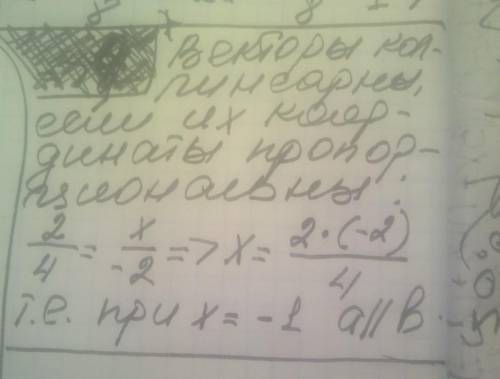 Векторы кол-
линеарны,
если их коор-
динаты пропор-
циональны:
2/4 = x/-2 => x = 2·(-2)/4
т.е. при x = -1 a || b